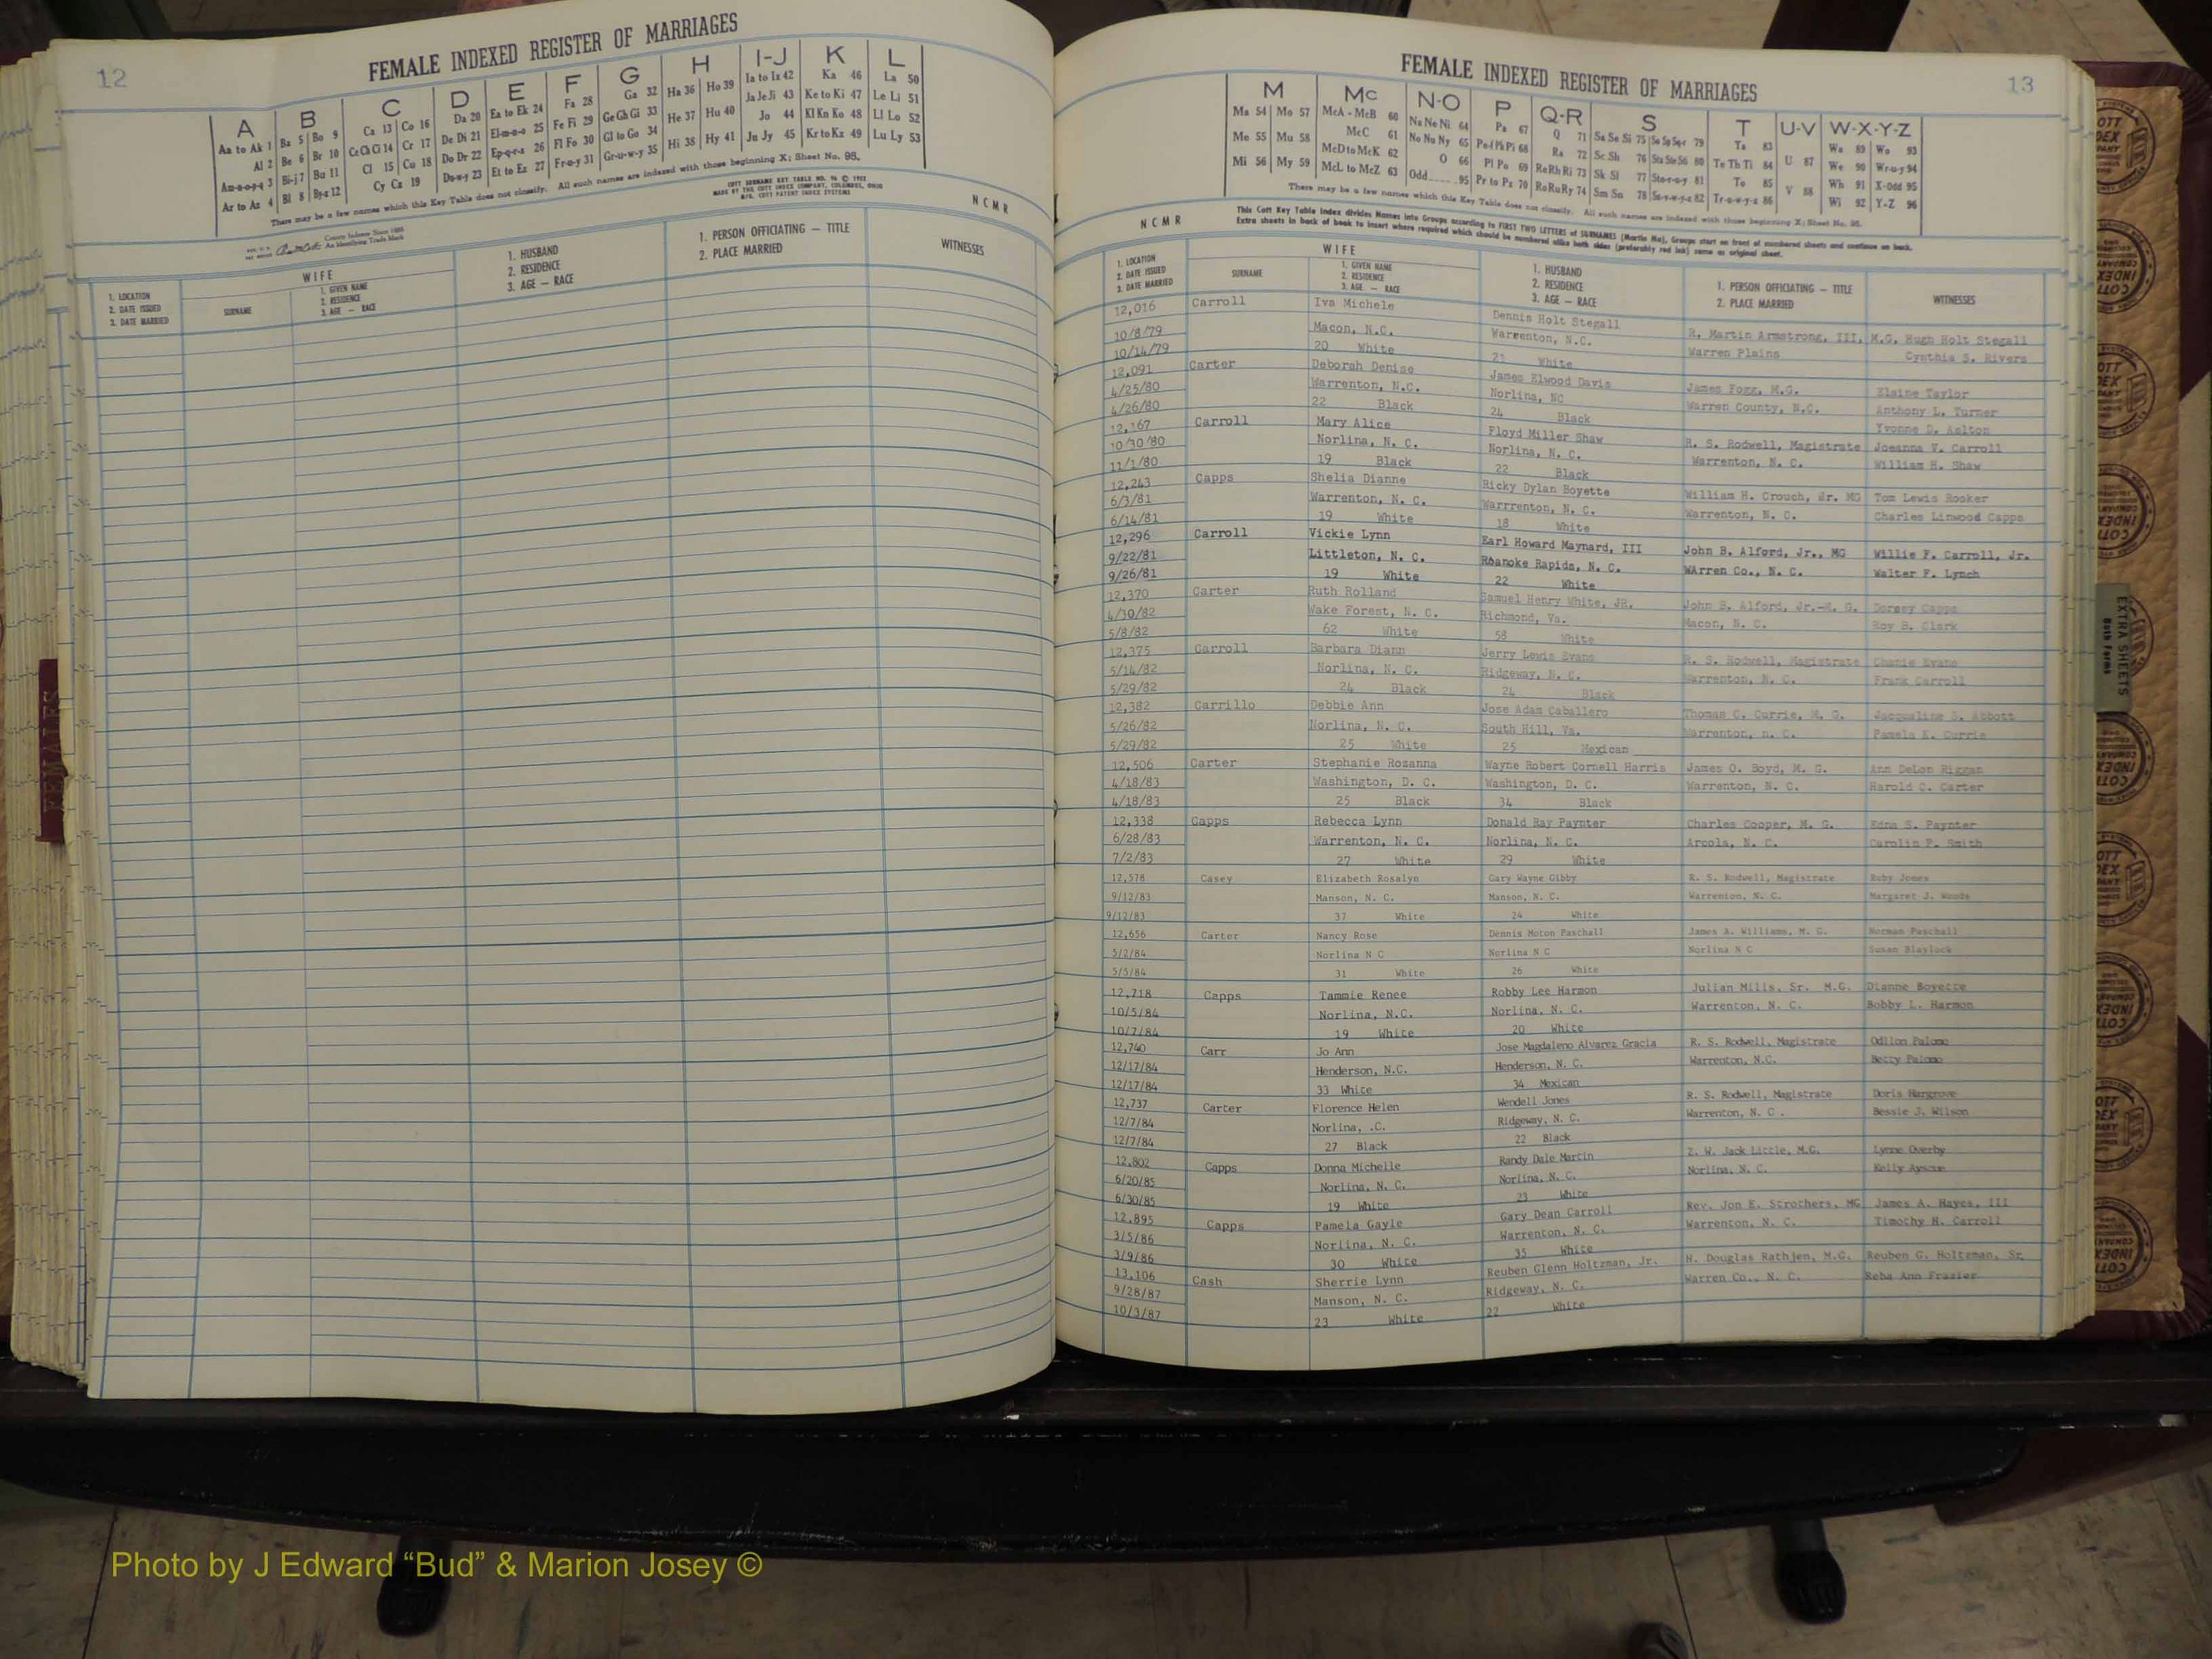 12
FEMALE INDEXED REGISTER OF MARRIAGES
A B C D E F G H I-J K L
Aa to Ak 1 Ba 5 Bo 9 Ca 13 Co 16 Da 20 Ea to Ek 24 Fa 28 Ga 32 Ha 36 Ho 39 Ia to Iz 42 Ka 46 La 50
Al 2 Be 6 Br 10 Ce Ch Ci 14 Cr 17 De Di 21 El-m-n-o 25 Fe Fi 29 Ge Gh Gi 33 He 37 Hu 40 Ja Je Ji 43 Ke to Ki 47 Le Li 51
Am-n-o-p-q 3 Bi-j 7 Bu 11 Cl 15 Cu 18 Do Dr 22 Ep-q-r-s 26 Fl Fo 30 Gl to Go 34 Hi 38 Hy 41 Jo 44 Kl Kn Ko 48 Ll Lo 52
Ar to Az 4 Bl 8 By-z 12 Cy Cz 19 Du-w-y 23 Et to Ez 27 Fr-u-y 31 Gr-u-w-y 35 Ju Jy 45 Kr to Kz 49 Lu Ly 53
There may be a few names which this Key Table does not classify. All such names are indexed with those beginning X; Sheet No. 98.
County Indexes Since 1888
An Identifying Trade Mark
COTT SURNAME KEY TABLE NO.
MADE BY THE COTT INDEX COMPANY, COLUMBUS, OHIO
NCMR
1. LOCATION
2. DATE ISSUED
3. DATE MARRIED
WIFE
SURNAME
1. GIVEN NAME
2. RESIDENCE
3. AGE — RACE
1. HUSBAND
2. RESIDENCE
3. AGE — RACE
1. PERSON OFFICIATING — TITLE
2. PLACE MARRIED
WITNESSES
FEMALES
FEMALE INDEXED REGISTER OF MARRIAGES
13
M Mc N-O P Q-R S T U-V W-X-Y-Z
Ma 54 Mo 57 McA - McB 60 Na Ne Ni 64 Pa 67 Q 71 Sa Se Si 75 So Sp Sq-r 79 Ta 83 Wa 89 Wo 93
Me 55 Mu 58 McC 61 No Nu Ny 65 Pe-f Ph Pi 68 Ra 72 Sc Sh 76 Sta Ste Sti 80 Te Th Ti 84 U 87 We 90 Wr-u-y 94
Mi 56 My 59 McD to McK 62 O 66 Pl Po 69 Re Rh Ri 73 Sk Sl 77 Sto-r-u-y 81 To 85 V 88 Wh 91 X-Odd 95
McL to McZ 63 Odd 95 Pr to Pz 70 Ro Ru Ry 74 Sm Sn 78 Su-v-w-y-z 82 Tr-u-w-y-z 86 Wi 92 Y-Z 96
There may be a few names which this Key Table does not classify. All such names are indexed with those beginning X; Sheet No. 98.
NCMR
This Cott Key Table Index divides Names into Groups according to FIRST TWO LETTERS of SURNAMES (Martin Ma), Groups start on front of numbered sheets and continue on back.
Extra sheets in back of book to insert where required which should be numbered alike both sides (preferably red ink) same as original sheet.
1. LOCATION
2. DATE ISSUED
3. DATE MARRIED
WIFE
SURNAME
1. GIVEN NAME
2. RESIDENCE
3. AGE — RACE
1. HUSBAND
2. RESIDENCE
3. AGE — RACE
1. PERSON OFFICIATING — TITLE
2. PLACE MARRIED
WITNESSES
12,016 Carroll Iva Michele Dennis Holt Stegall R. Martin Armstrong, III, M.G. Hugh Holt Stegall
10/8/79 Macon, N.C. Warrenton, N.C. Warren Plains Cynthia S. Rivers
10/14/79 20 White 21 White
12,091 Carter Deborah Denise James Elwood Davis James Fogg, M.G. Elaine Taylor
4/25/80 Warrenton, N.C. Norlina, NC Warren County, N.C. Anthony L. Turner
4/26/80 22 Black 24 Black Yvonne D.
12,167 Carroll Mary Alice Floyd Miller Shaw R. S. Rodwell, Magistrate Joeanna V. Carroll
10/30/80 Norlina, N. C. Norlina, N. C. Warrenton, N. C. William H. Shaw
11/1/80 19 Black 22 Black
12,243 Capps Shelia Dianne Ricky Dylan Boyette William H. Crouch, Jr. MG Tom Lewis Rooker
6/3/81 Warrenton, N. C. Warrrenton, N. C. Warrenton, N. C. Charles Linwood Capps
6/14/81 19 White 18 White
12,296 Carroll Vickie Lynn Earl Howard Maynard, III John B. Alford, Jr., MG Willie F. Carroll, Jr.
9/22/81 Littleton, N. C. Roanoke Rapids, N. C. WArren Co., N. C. Walter F. Lynch
9/26/81 19 White 22 White
12,370 Carter Ruth Rolland Samuel Henry White, JR. John B. Alford, Jr.-M. G. Dorsey Capps
4/30/82 Wake Forest, N. C. Richmond, Va. Macon, N. C. Roy B. Clark
5/8/82 62 White 58 White
12,375 Carroll Barbara Diann Jerry Lewis Evans R. S. Rodwell, Magistrate Chanie Evans
5/14/82 Norlina, N. C. Ridgeway, N. C. Warrenton, N. C. Frank Carroll
5/29/82 24 Black 24 Black
12,382 Carrillo Debbie Ann Jose Adam Caballero Thomas C. Currie, M. G. Jacqueline S. Abbott
5/26/82 Norlina, N. C. South Hill, Va. Warrenton, n. C. Pamela K. Currie
5/29/82 25 White 25 Mexican
12,506 Carter Stephanie Rozanna Wayne Robert Cornell Harris James O. Boyd, M. G. Ann DeLon Riggan
4/18/83 Washington, D. C. Washington, D. C. Warrenton, N. C. Harold C. Carter
4/18/83 25 Black 34 Black
12,338 Capps Rebecca Lynn Donald Ray Paynter Charles Cooper, M. G. Edna S. Paynter
6/28/83 Warrenton, N. C. Norlina, N. C. Arcola, N. C. Carolin P. Smith
7/2/83 27 White 29 White
12,578 Casey Elizabeth Rosalyn Gary Wayne Gibby R. S. Rodwell, Magistrate Ruby Jones
9/12/83 Manson, N. C. Manson, N. C. Warrenton, N. C. Margaret J. Woods
9/12/83 37 White 24 White
12,656 Carter Nancy Rose Dennis Moton Paschall James A. Williams, M. G. Norman Paschall
5/2/84 Norlina N C Norlina N C Norlina N C Susan Blaylock
5/5/84 31 White 26 White
12,718 Capps Tammie Renee Robby Lee Harmon Julian Mills, Sr. M.G. Dianne Boyette
10/5/84 Norlina, N.C. Norlina, N. C. Warrenton, N. C. Bobby L. Harmon
10/7/84 19 White 20 White
12,740 Carr Jo Ann Jose Magdaleno Alvarez Gracia R. S. Rodwell, Magistrate Odilon Palomo
12/17/84 Henderson, N.C. Henderson, N. C. Warrenton, N.C. Betty Palomo
12/17/84 33 White 34 Mexican
12,737 Carter Florence Helen Wendell Jones R. S. Rodwell, Magistrate Doris Hargrove
12/7/84 Norlina, .C. Ridgeway, N. C. Warrenton, N. C . Bessie J. Wilson
12/7/84 27 Black 22 Black
12,802 Capps Donna Michelle Randy Dale Martin Z. W. Jack Little, M.G. Lynne Overby
6/20/85 Norlina, N. C. Norlina, N. C. Norlina, N. C. Kelly Ayscue
6/30/85 19 White 23 White
12,895 Capps Pamela Gayle Gary Dean Carroll Rev. Jon E. Strothers, MG James A. Hayes, III
3/5/86 Norlina, N. C. Warrenton, N. C. Warrenton, N. C. Timothy H. Carroll
3/9/86 30 White 35 White
13,106 Cash Sherrie Lynn Reuben Glenn Holtzman, Jr. H. Douglas Rathjen, M.G. Reuben G. Holtzman, Sr.
9/28/87 Manson, N. C. Ridgeway, N. C. Warren Co., N. C. Reba Ann Frazier
10/3/87 23 White 22 White
EXTRA SHEETS
Both Forms
Photo by J Edward “Bud” & Marion Josey ©